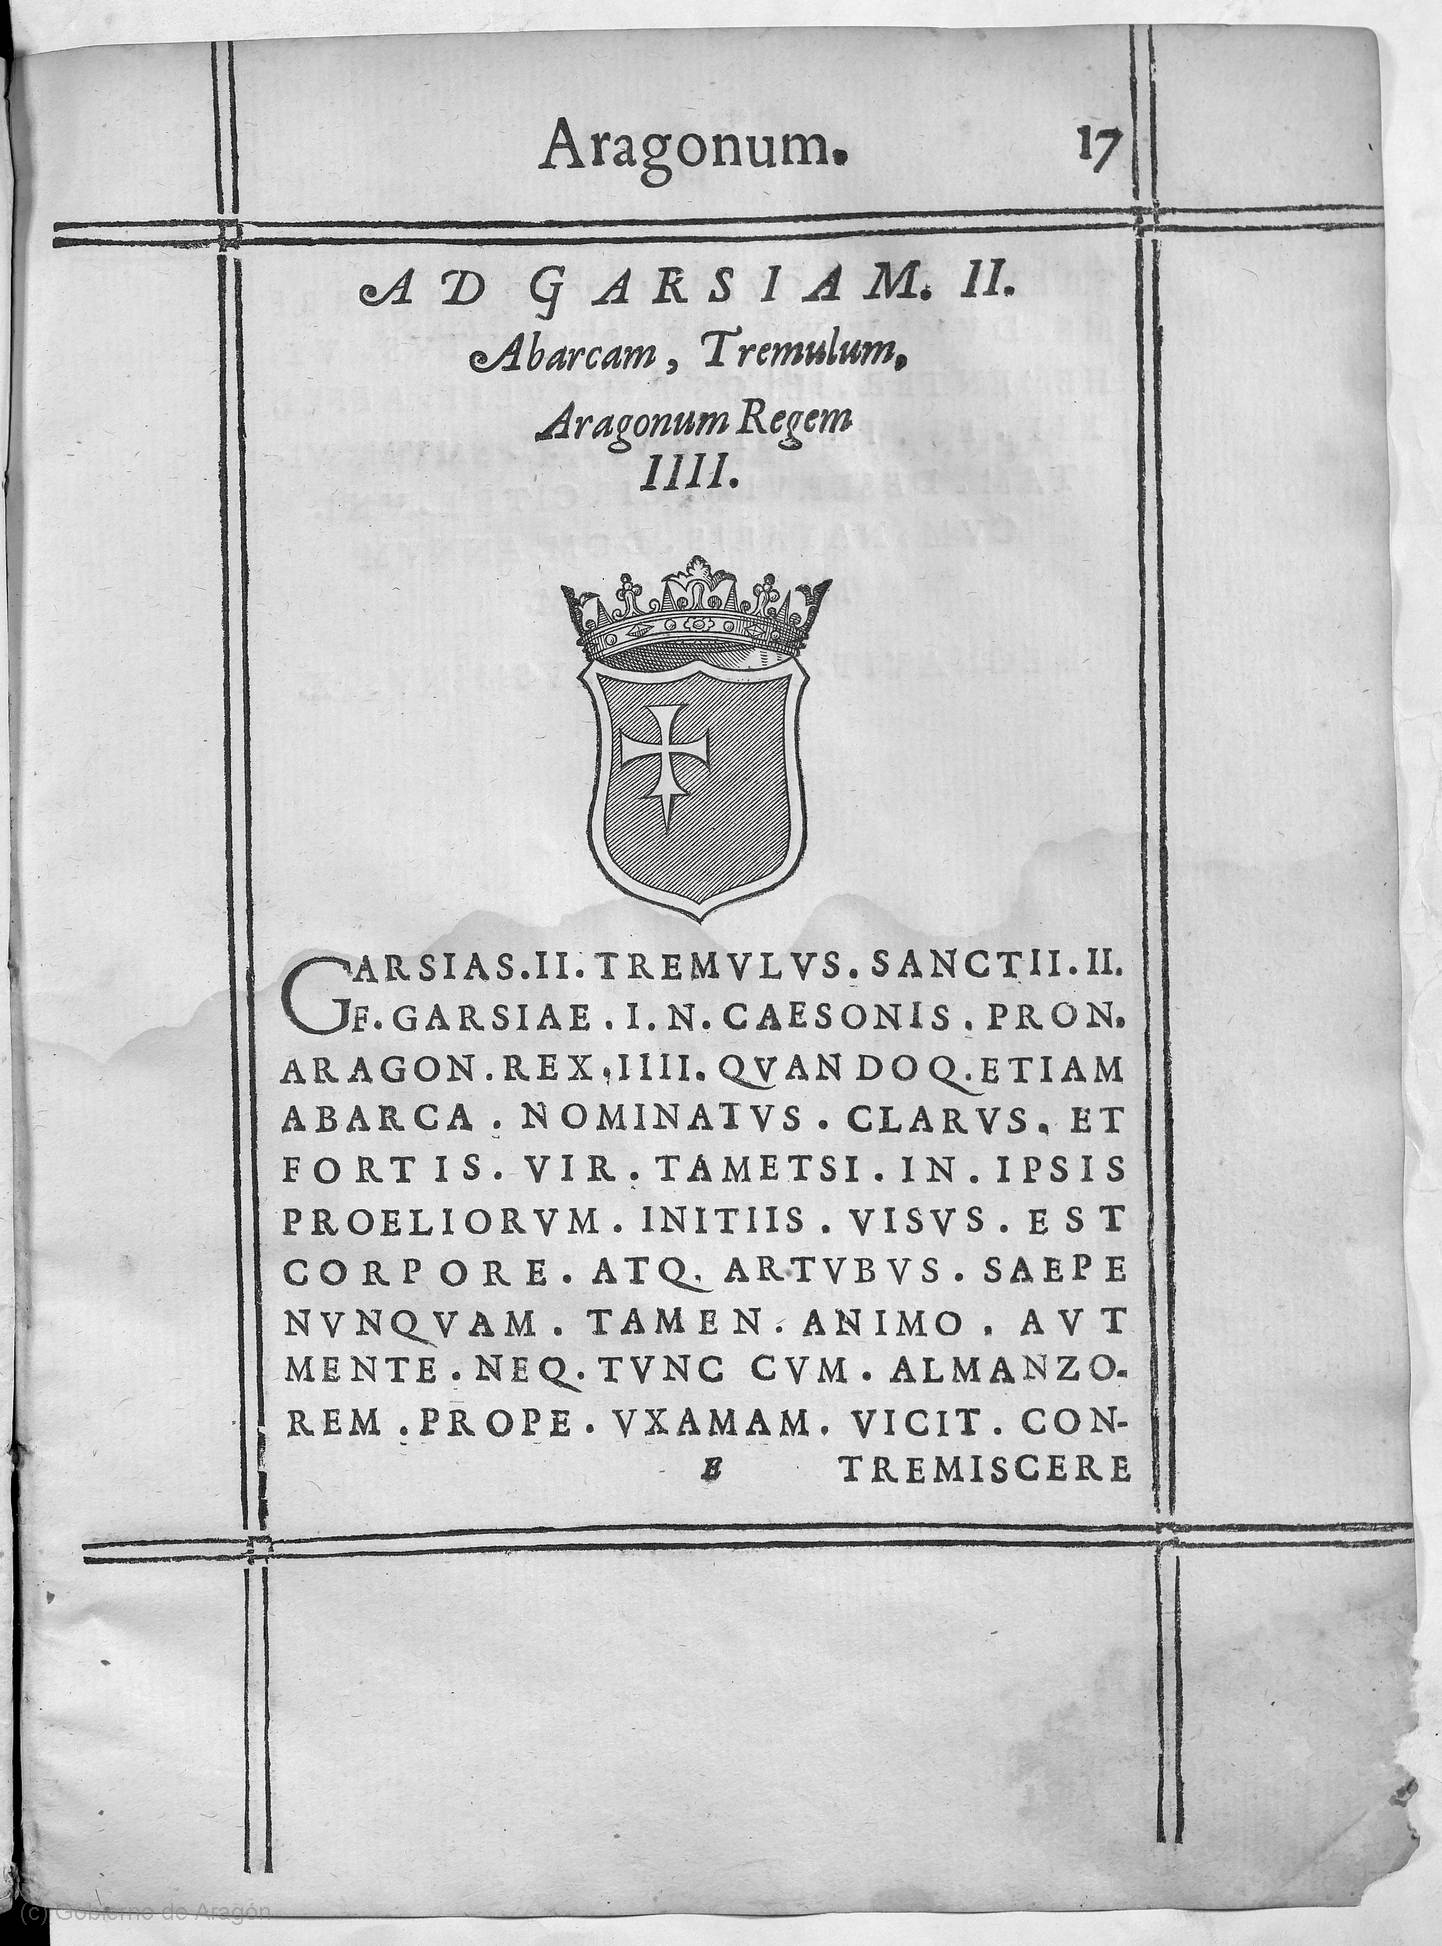 Aragonum. 17
AD GARSIAM. II.
Abarcam, Tremulum,
Aragonum Regem
IIII.
GARSIAS.II.TREMVLVS.SANCTII.II.
F.GARSIAE.I.N.CAESONIS.PRON.
ARAGON.REX.IIII.QVANDOQ.ETIAM
ABARCA.NOMINATVS.CLARVS.ET
FORTIS.VIR.TAMETSI.IN.IPSIS
PROELIORVM.INITIIS.VISVS.EST
CORPORE.ATQ.ARTVBVS.SAEPE
NVNQVAM.TAMEN.ANIMO.AVT
MENTE.NEQ.TVNC CVM.ALMANZO-
REM.PROPE.VXAMAM.VICIT.CON-
E TREMISCERE
(c) Gobierno de Aragón